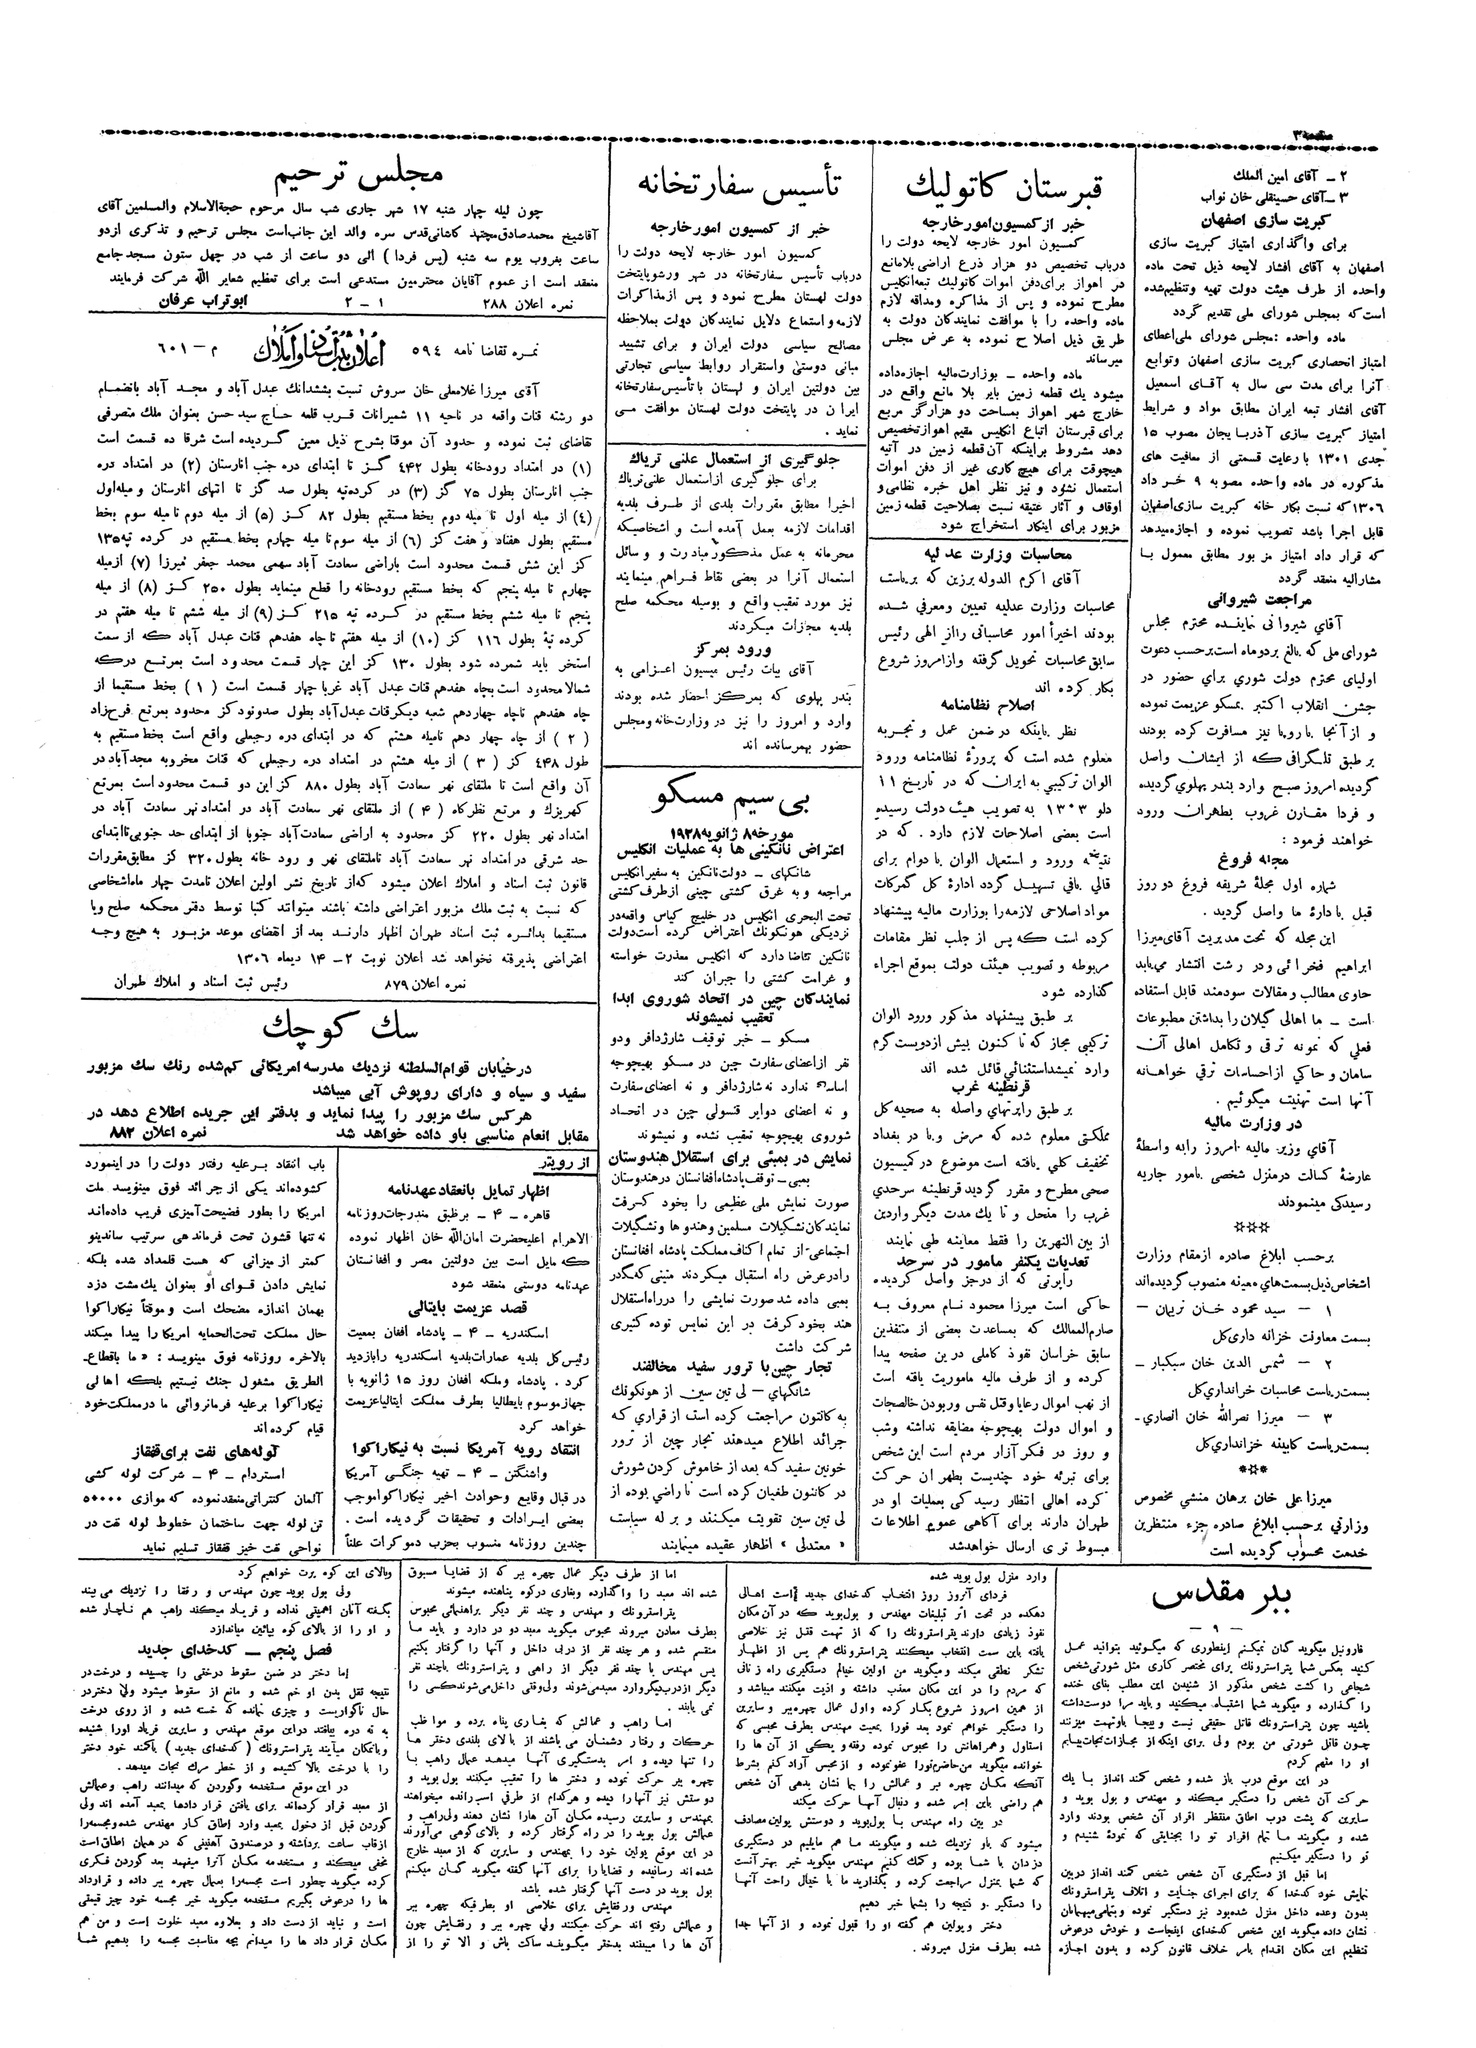 صفحه ۳
۲ ــ آقای امین الملک
۳ ــ آقای حسینقلی خان نواب
کبریت سازی اصفهان
برای واگذاری امتیاز کبریت سازی
اصفهان به آقای افشار لایحه ذیل تحت ماده
واحده از طرف هیئت دولت تهیه وتنظیم‌شده
است که بمجلس شورای ملی تقدیم گردد
ماده واحده : مجلس شورای ملی اعطای
امتیاز انحصاری کبریت سازی اصفهان وتوابع
آنرا برای مدت سی سال به آقای اسمعیل
آقای افشار تبعه ایران مطابق مواد و شرایط
امتیاز کبریت سازی آذربایجان مصوب ۱۵
جدی ۱۳۰۱ با رعایت قسمتی از معافیت های
مذکوره در ماده واحده مصوبه ۹ خرداد
۱۳۰۶ که نسبت بکار خانه کبریت سازی اصفهان
قابل اجرا باشد تصویب نموده و اجازه میدهد
که قرار داد امتیاز مزبور مطابق معمول با
مشارالیه منعقد گردد
مراجعت شیروانی
آقای شیروانی نماینده محترم مجلس
شورای ملی که بالغ بردوماه است برحسب دعوت
اولیای محترم دولت شوروی برای حضور در
جشن انقلاب اکتبر بمسکو عزیمت نموده
و از آنجا باروپا نیز مسافرت کرده بودند
بر طبق تلگرافی که از ایشان واصل
گردیده امروز صبح وارد بندر پهلوی گردیده
و فردا مقارن غروب بطهران ورود
خواهند فرمود :
مجله فروغ
شماره اول مجله شریفه فروغ دو روز
قبل باداره ما واصل گردید .
این مجله که تحت مدیریت آقای میرزا
ابراهیم فخرائی و در رشت انتشار می‌یابد
حاوی مطالب و مقالات سودمند قابل استفاده
است ــ ما اهالی گیلان را بداشتن مطبوعات
فعلی که نمونه ترقی و تکامل اهالی آن
سامان و حاکی از احساسات ترقی خواهانه
آنها است تهنیت میگوئیم .
در وزارت مالیه
آقای وزیر مالیه امروز رابه واسطهٔ
عارضهٔ کسالت درمنزل شخصی بامور جاریه
رسیدگی مینمودند
***
برحسب ابلاغ صادره ازمقام وزارت
اشخاص ذیل بسمت‌های معینه منصوب گردیده‌اند
۱ ــ سید محمود خان نریمان ــ
بسمت معاونت خزانه داری کل
۲ ــ شمس الدین خان سبکبار ــ
بسمت ریاست محاسبات خزانداری کل
۳ ــ میرزا نصرالله خان انصاری ــ
بسمت ریاست کابینه خزانداری کل
***
میرزا علی خان برهان منشی مخصوص
وزارتی برحسب ابلاغ صادره جزء منتظرین
خدمت محسوب گردیده است
قبرستان کاتولیک
خبر از کمسیون امور خارجه
کمسیون امور خارجه لایحه دولت را
درباب تخصیص دو هزار ذرع اراضی بلامانع
در اهواز برای دفن اموات کاتولیک تبعه انگلیس
مطرح نموده و پس از مذاکره ومداقه لازم
ماده واحده را با موافقت نمایندگان دولت به
طریق ذیل اصلاح نموده به عرض مجلس
میرساند
ماده واحده ــ بوزارت مالیه اجازه داده
میشود یک قطعه زمین بایر بلا مانع واقع در
خارج شهر اهواز بمساحت دو هزارگز مربع
برای قبرستان اتباع انگلیس مقیم اهواز تخصیص
دهد مشروط براینکه آن قطعه زمین در آتیه
هیچوقت برای هیچ کاری غیر از دفن اموات
استعمال نشود و نیز نظر اهل خبره نظامی و
اوقاف و آثار عتیقه نسبت بصلاحیت قطعه زمین
مزبور برای اینکار استخراج شود
محاسبات وزارت عدلیه
آقای اکرم الدوله برزین که بریاست
محاسبات وزارت عدلیه تعیین ومعرفی شده
بودند اخیراً امور محاسباتی را از الهی رئیس
سابق محاسبات تحویل گرفته و از امروز شروع
بکار کرده اند
اصلاح نظامنامه
نظر باینکه در ضمن عمل و تجربه
معلوم شده است که پروژهٔ نظامنامه ورود
الوان ترکیبی به ایران که در تاریخ ۱۱
دلو ۱۳۰۳ به تصویب هیئت دولت رسیده
است بعضی اصلاحات لازم دارد . که در
نتیجه ورود و استعمال الوان بادوام برای
قالی بافی تسهیل گردد ادارهٔ کل گمرکات
مواد اصلاحی لازمه را بوزارت مالیه پیشنهاد
کرده است که پس از جلب نظر مقامات
مربوطه و تصویب هیئت دولت بموقع اجراء
گذارده شود
بر طبق پیشنهاد مذکور ورود الوان
ترکیبی مجاز که تاکنون بیش از دویست گرم
وارد نمیشد استثنائی قائل شده اند
قرنطینه غرب
بر طبق راپرتهای واصله به صحیه کل
مملکتی معلوم شده که مرض وبا در بغداد
تخفیف کلی یافته است موضوع در کمیسیون
صحی مطرح و مقرر گردید قرنطینه سرحدی
غرب را منحل و تا یک مدت دیگر واردین
از بین النهرین را فقط معاینه طبی نمایند
تعدیات یکنفر مامور در سرحد
راپرتی که از درجز واصل گردیده
حاکی است میرزا محمود نام معروف به
صارم‌الممالک که بمساعدت بعضی از متنفذین
سابق خراسان نفوذ کاملی درین صفحه پیدا
کرده و از طرف مالیه ماموریت یافته است
از نهب اموال رعایا وقتل نفس و ربودن خالصجات
و اموال دولت بهیچوجه مضایقه نداشته وشب
و روز در فکر آزار مردم است این شخص
برای تبرئه خود چندیست بطهران حرکت
کرده اهالی انتظار رسیدگی بعملیات او در
طهران دارند برای آگاهی عموم اطلاعات
مبسوط تری ارسال خواهدشد
تأسیس سفارتخانه
خبر از کمسیون امور خارجه
کمسیون امور خارجه لایحه دولت را
درباب تأسیس سفارتخانه در شهر ورشو پایتخت
دولت لهستان مطرح نمود و پس از مذاکرات
لازمه و استماع دلایل نمایندگان دولت بملاحظه
مصالح سیاسی دولت ایران و برای تشیید
مبانی دوستی واستقرار روابط سیاسی تجارتی
بین دولتین ایران و لهستان با تأسیس سفارتخانه
ایران در پایتخت دولت لهستان موافقت می
نماید .
جلوگیری از استعمال علنی تریاک
برای جلو گیری از استعمال علنی تریاک
اخیرا مطابق مقررات بلدی از طرف بلدیه
اقدامات لازمه بعمل آمده است و اشخاصیکه
محرمانه به عمل مذکور مبادرت و وسائل
استعمال آنرا در بعضی نقاط فراهم مینمایند
نیز مورد تعقیب واقع و بوسیله محکمه صلح
بلدیه مجازات میگردند
ورود بمرکز
آقای بیات رئیس میسیون اعزامی به
بندر پهلوی که بمرکز احضار شده بودند
وارد و امروز را نیز در وزارت خانه ومجلس
حضور بهمرسانده اند
بی سیم مسکو
مورخه ۸ ژانویه ۱۹۲۸
اعتراض نانکینی ها به عملیات انگلیس
شانگهای ــ دولت نانکین به سفیر انگلیس
مراجعه و به غرق کشتی چینی از طرف کشتی
تحت البحری انگلیس در خلیج کیاس واقعه در
نزدیکی هونکونک اعتراض کرده است دولت
نانکین تقاضا دارد که انگلیس معذرت خواسته
و غرامت کشتی را جبران کند
نمایندگان چین در اتحاد شوروی ابدا
تعقیب نمیشوند
مسکو ــ خبر توقیف شارژدافر ودو
نفر از اعضای سفارت چین در مسکو بهیچوجه
اساسی ندارد نه شارژدافر و نه اعضای سفارت
و نه اعضای دوایر قنسولی چین در اتحاد
شوروی بهیچوجه تعقیب نشده و نمیشوند
نمایش در بمبئی برای استقلال هندوستان
بمبی ــ توقف پادشاه افغانستان در هندوستان
صورت نمایش ملی عظیمی را بخود گرفت
نمایندگان تشکیلات مسلمین وهندوها وتشکیلات
اجتماعی از تمام اکناف مملکت پادشاه افغانستان
رادرعرض راه استقبال میکردند متینی که گدر
بمبی داده شد صورت نمایشی را درراه استقلال
هند بخود گرفت در این نمایس توده کثیری
شرکت داشت
تجار چین با ترور سفید مخالفند
شانگهای ــ لی تین سین از هونکونک
به کانتون مراجعت کرده است از قراری که
جرائد اطلاع میدهند تجار چین از ترور
خونین سفید که بعد از خاموش کردن شورش
در کانتون طغیان کرده است ناراضی بوده از
لی تین سین تقویت میکنند و بر له سیاست
« معتدلی » اظهار عقیده مینمایند
مجلس ترحیم
چون لیله چهار شنبه ۱۷ شهر جاری شب سال مرحوم حجة‌الاسلام والمسلمین آقای
آقاشیخ محمدصادق مجتهد کاشانی قدس سره والد این جانب است مجلس ترحیم و تذکری از دو
ساعت بغروب یوم سه شنبه (پس فردا) الی دو ساعت از شب در چهل ستون مسجد جامع
منعقد است از عموم آقایان محترمین مستدعی است برای تعظیم شعایر الله شرکت فرمایند
نمره اعلان ۲۸۸ ۱ ــ ۲ ابوتراب عرفان
نمره تقاضا نامه ۵۹۴ اعلان ثبت اسناد و املاک م ــ ۶۰۱
آقای میرزا غلامعلی خان سروش نسبت بششدانک عبدل آباد و مجد آباد بانضمام
دو رشته قنات واقعه در ناحیه ۱۱ شمیرانات قرب قلعه حاج سید حسن بعنوان ملک متصرفی
تقاضای ثبت نموده و حدود آن موقتا بشرح ذیل معین گردیده است شرقا ده قسمت است
(۱) در امتداد رودخانه بطول ۴۴۲ گز تا ابتدای دره جنب انارستان (۲) در امتداد دره
جنب انارستان بطول ۷۵ گز (۳) در کرده‌تپه بطول صد گز تا انتهای انارستان و میله‌اول
(۴) از میله اول تا میله دوم بخط مستقیم بطول ۸۲ گز (۵) از میله دوم تا میله سوم بخط
مستقیم بطول هفتاد و هفت گز (۶) از میله سوم تا میله چهارم بخط مستقیم در کرده تپه ۱۳۵
گز این شش قسمت محدود است باراضی سعادت آباد سهمی محمد جعفر میرزا (۷) ازمیله
چهارم تا میله پنجم که بخط مستقیم رودخانه را قطع مینماید بطول ۲۵۰ گز (۸) از میله
پنجم تا میله ششم بخط مستقیم در کرده تپه ۲۱۵ گز (۹) از میله ششم تا میله هفتم در
کرده تپهٔ بطول ۱۱۶ گز (۱۰) از میله هفتم تا چاه هفدهم قنات عبدل آباد که از سمت
استخر باید شمرده شود بطول ۱۳۰ گز این چهار قسمت محدود است بمرتع درکه
شمالا محدود است بچاه هفدهم قنات عبدل آباد غربا چهار قسمت است (۱) بخط مستقیما از
چاه هفدهم تاچاه چهاردهم شعبه دیگر قنات عبدل‌آباد بطول صدونود گز محدود بمرتع فرح‌زاد
(۲) از چاه چهار دهم تا میله هشتم که در ابتدای دره رجبعلی واقع است بخط مستقیم به
طول ۴۴۸ گز (۳) از میله هشتم در امتداد دره رجبعلی که قنات مخروبه مجدآباد در
آن واقع است تا ملتقای نهر سعادت آباد بطول ۸۸۰ گز این دو قسمت محدود است بمرتع
کهریزک و مرتع نظرگاه (۴) از ملتقای نهر سعادت آباد در امتداد نهر سعادت آباد در
امتداد نهر بطول ۲۲۰ گز محدود به اراضی سعادت‌آباد جنوبا از ابتدای حد جنوبی تا ابتدای
حد شرقی در امتداد نهر سعادت آباد تا ملتقای نهر و رود خانه بطول ۳۲۰ گز مطابق مقررات
قانون ثبت اسناد و املاک اعلان میشود که از تاریخ نشر اولین اعلان تامدت چهار ماه اشخاصی
که نسبت به ثبت ملک مزبور اعتراضی داشته باشند میتوانند کتبا توسط دفتر محکمه صلح ویا
مستقیما بدائره ثبت اسناد طهران اظهار دارند بعد از انقضای موعد مزبور به هیچ وجه
اعتراضی پذیرفته نخواهد شد اعلان نوبت ۲ ــ ۱۴ دیماه ۱۳۰۶
نمره اعلان ۸۷۹ رئیس ثبت اسناد و املاک طهران
سک کوچک
درخیابان قوام‌السلطنه نزدیک مدرسه امریکائی کم‌شده رنک سک مزبور
سفید و سیاه و دارای روپوش آبی میباشد
هرکس سک مزبور را پیدا نماید و بدفتر این جریده اطلاع دهد در
مقابل انعام مناسبی باو داده خواهد شد نمره اعلان ۸۸۲
از رویتر
اظهار تمایل بانعقاد عهدنامه
قاهره ــ ۴ ــ برطبق مندرجات روزنامه
الاهرام اعلیحضرت امان‌الله خان اظهار نموده
که مایل است بین دولتین مصر و افغانستان
عهدنامه دوستی منعقد شود
قصد عزیمت بایتالی
اسکندریه ــ ۴ ــ پادشاه افغان بمعیت
رئیس کل بلدیه عمارات بلدیه اسکندریه را بازدید
کرد . پادشاه وملکه افغان روز ۱۵ ژانویه با
جهاز موسوم بایطالیا بطرف مملکت ایتالیا عزیمت
خواهد کرد
انتقاد رویه آمریکا نسبت به نیکاراکوا
واشنگتن ــ ۴ ــ تهیه جنگی آمریکا
در قبال وقایع وحوادث اخیر نیکاراکوا موجب
بعضی ایرادات و تحقیقات گردیده است .
چندین روزنامه منسوب بحزب دموکرات علناً
باب انتقاد بر علیه رفتار دولت را در اینمورد
کشوده‌اند یکی از جرائد فوق مینویسد ملت
امریکا را بطور فضیحت‌آمیزی فریب داده‌اند
نه تنها قشون تحت فرماندهی سرتیپ ساندینو
کمتر از میزانی که هست قلمداد شده بلکه
نمایش دادن قوای او بعنوان یک مشت دزد
بهمان اندازه مضحک است و موقتاً نیکاراکوا
حال مملکت تحت‌الحمایه امریکا را پیدا میکند
بالاخره روزنامه فوق مینویسد : « ما باقطاع‌ــ
الطریق مشغول جنک نیستیم بلکه اهالی
نیکاراکوا برعلیه فرمانروائی ما درمملکت خود
قیام کرده اند
لوله‌های نفت برای قفقاز
استردام ــ ۴ ــ شرکت لوله کشی
آلمان کنتراتی منعقد نموده که موازی ۵۰۰۰۰
تن لوله جهت ساختمان خطوط لوله نفت در
نواحی نفت خیز قفقاز تسلیم نماید
ببر مقدس
ــ ۹ ــ
فارونیل میگوید گمان نمیکنم اینطوری که میگوئید بتوانید عمل
کنید بعکس شما پتراسترونک برای مختصر کاری مثل شورتی شخص
شجاعی را کشت شخص مذکور از شنیدن این مطلب بنای خنده
را گذارده و میگوید شما اشتباه میکنید و باید مرا دوست‌داشته
باشید چون پتراسترونک قاتل حقیقی نیست و بیجا باوتهمت میزنند
چون قاتل شورتی من بودم ولی برای اینکه از مجازات نجات بیابم
او را متهم کردم
در این موقع درب باز شده و شخص کمند انداز با یک
حرکت آن شخص را دستگیر میکند و مهندس و پول بوید و
سایرین که پشت درب اطاق منتظر اقرار آن شخص بودند وارد
شده و میگویند ما تمام اقرار تو را بجنایتی که نمودهٔ شنیدیم و
تو را دستگیر میکنیم
اما قبل از دستگیری آن شخص شخص کمند انداز در بین
نمایش خود کدخدا که برای اجرای جنایت و اتلاف پتراسترونک
بدون وعده داخل منزل شده‌بود نیز دستگیر نموده وبتمامی میهمانان
نشان داده میگوید این شخص کدخدای اینجاست و خودش درعوض
تنظیم این مکان اقدام بامر خلاف قانون کرده و بدون اجازه
وارد منزل پول بوید شده
فردای آنروز روز انتخاب کدخدای جدید است اهالی
دهکده در تحت اثر تبلیغات مهندس و پول‌بوید که در آن مکان
نفوذ زیادی دارند پتراسترونک را که از تهمت قتل نیز خلاصی
یافته باین سمت انتخاب میکنند پتراسترونک هم پس از اظهار
تشکر نطقی میکند و میگوید من اولین خیالم دستگیری راه زنانی
که مردم را در این مکان معذب داشته و اذیت میکنند میباشد و
از همین امروز شروع بکار کرده و اول عمال چهره‌ببر و سایرین
را دستگیر خواهم نمود بعد فورا بمعیت مهندس بطرف محبسی که
استاول و همراهانش را محبوس نموده رفته و یکی از آن ها را
خوانده میگوید من حاضرم تورا عفو نموده و از محبس آزاد کنم بشرط
آنکه مکان چهره ببر و عمالش را بما نشان بدهی آن شخص
هم راضی باین امر شده و دنبال آنها حرکت میکند
در بین راه مهندس با پول‌بوید و دوستش پولین مصادف
میشود که باو نزدیک شده و میگویند ما هم مایلیم در دستگیری
دزدان با شما بوده و کمک کنیم مهندس میگوید خیر بهتر آنست
که شما بمنزل مراجعت کرده و بگذارید ما با خیال راحت آنها
را دستگیر و نتیجه را بشما خبر دهیم
دختر و پولین هم گفته او را قبول نموده و از آنها جدا
شده بطرف منزل میروند .
اما از طرف دیگر عمال چهره ببر که از قضایا مسبوق
شده اند معبد را واگذارده وبغاری درکوه پناهنده میشوند
پتراسترونک و مهندس و چند نفر دیگر براهنمائی محبوس
بطرف معادن میروند محبوس میگوید معبد دو در دارد و باید ما
منقسم شده و هر چند نفر از دربی داخل و آنها را گرفتار بکنیم
پس مهندس با چند نفر دیگر از راهی و پتراسترونک باچند نفر
دیگر از درب‌دیگر وارد معبد می‌شوند ولی وقتی داخل می‌شوند کسی را
نمی یابند .
اما راهب و عمالش که بغاری پناه برده و مواظب
حرکات و رفتار دشمنان می باشند از بالای بلندی دختر ها
را تنها دیده و امر بدستگیری آنها میدهد عمال راهب با
چهره ببر حرکت نموده و دختر ها را تعقیب میکنند پول بوید و
دوستش نیز آنها را دیده و هرکدام از طرفی اسب رانده میخواهند
بمهندس و سایرین رسیده مکان آن هارا نشان دهند ولی راهب و
عمالش پول بوید را در راه گرفتار کرده و بالای کوهی می‌آورند
در این موقع پولین خود را بمهندس و سایرین که از معبد خارج
شده اند رسانیده و قضایا را برای آنها گفته میگوید گمان میکنم
پول بوید در دست آنها گرفتار شده باشد
مهندس ورفقایش برای خلاصی او بطرفیکه چهره ببر
و عمالش رفته اند حرکت میکنند ولی چهره ببر و رفقایش چون
آن ها را میبینند بدختر میگویند ساکت باش و الا تو را از
وبالای این کوه پرت خواهیم کرد
ولی پول بوید چون مهندس و رفقا را نزدیک می بیند
بگفته آنان اهمیتی نداده و فریاد میکند راهب هم ناچار شده
و او را از بالای کوه بپائین میاندازد
فصل پنجم ــ کدخدای جدید
اما دختر در ضمن سقوط درختی را چسبیده و درخت در
نتیجه ثقل بدن او خم شده و مانع از سقوط میشود ولی دختر در
حال ناگواریست و چیزی نمانده که خسته شده و از روی درخت
به ته دره بیافتد در این موقع مهندس و سایرین فریاد اورا شنیده
وبآنمکان میآیند پتراسترونک ( کدخدای جدید ) باکمند خود دختر
را با درخت بالا کشیده و از خطر مرک نجات میدهد .
در این موقع مستخدمه وگوردن که میدانند راهب وعمالش
از معبد فرار کرده‌اند برای یافتن قرار دادها بمعبد آمده اند ولی
گوردن قبل از دخول بمعبد وارد اطاق کار مهندس شده ومجسمه‌را
از قاب ساعت برداشته و درصندوق آهنینی که در همان اطاق است
مخفی میکند و مستخدمه مکان آنرا میفهمد بعد گوردن فکری
کرده میگوید چطور است مجسمه‌را بعمال چهره ببر داده و قرارداد
ها را درعوض بگیریم مستخدمه میگوید خیر مجسمه خود چیز قیمتی
است و نباید از دست داد و بعلاوه معبد خلوت است و من هم
مکان قرار داد ها را میدانم بچه مناسبت مجسمه را بدهیم شما